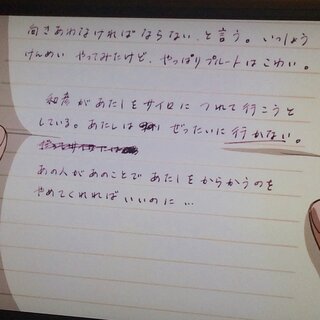 向きあわなければならない、と言う。いっしょう
けんめい やってみたけど、やっぱりプルートはこわい。
和彦があたしをサイロに つれて行こうと
している。あたしは ぜったいに行かない。
あの人があのことで あたしをからかうのを
やめてくれればいいのに…